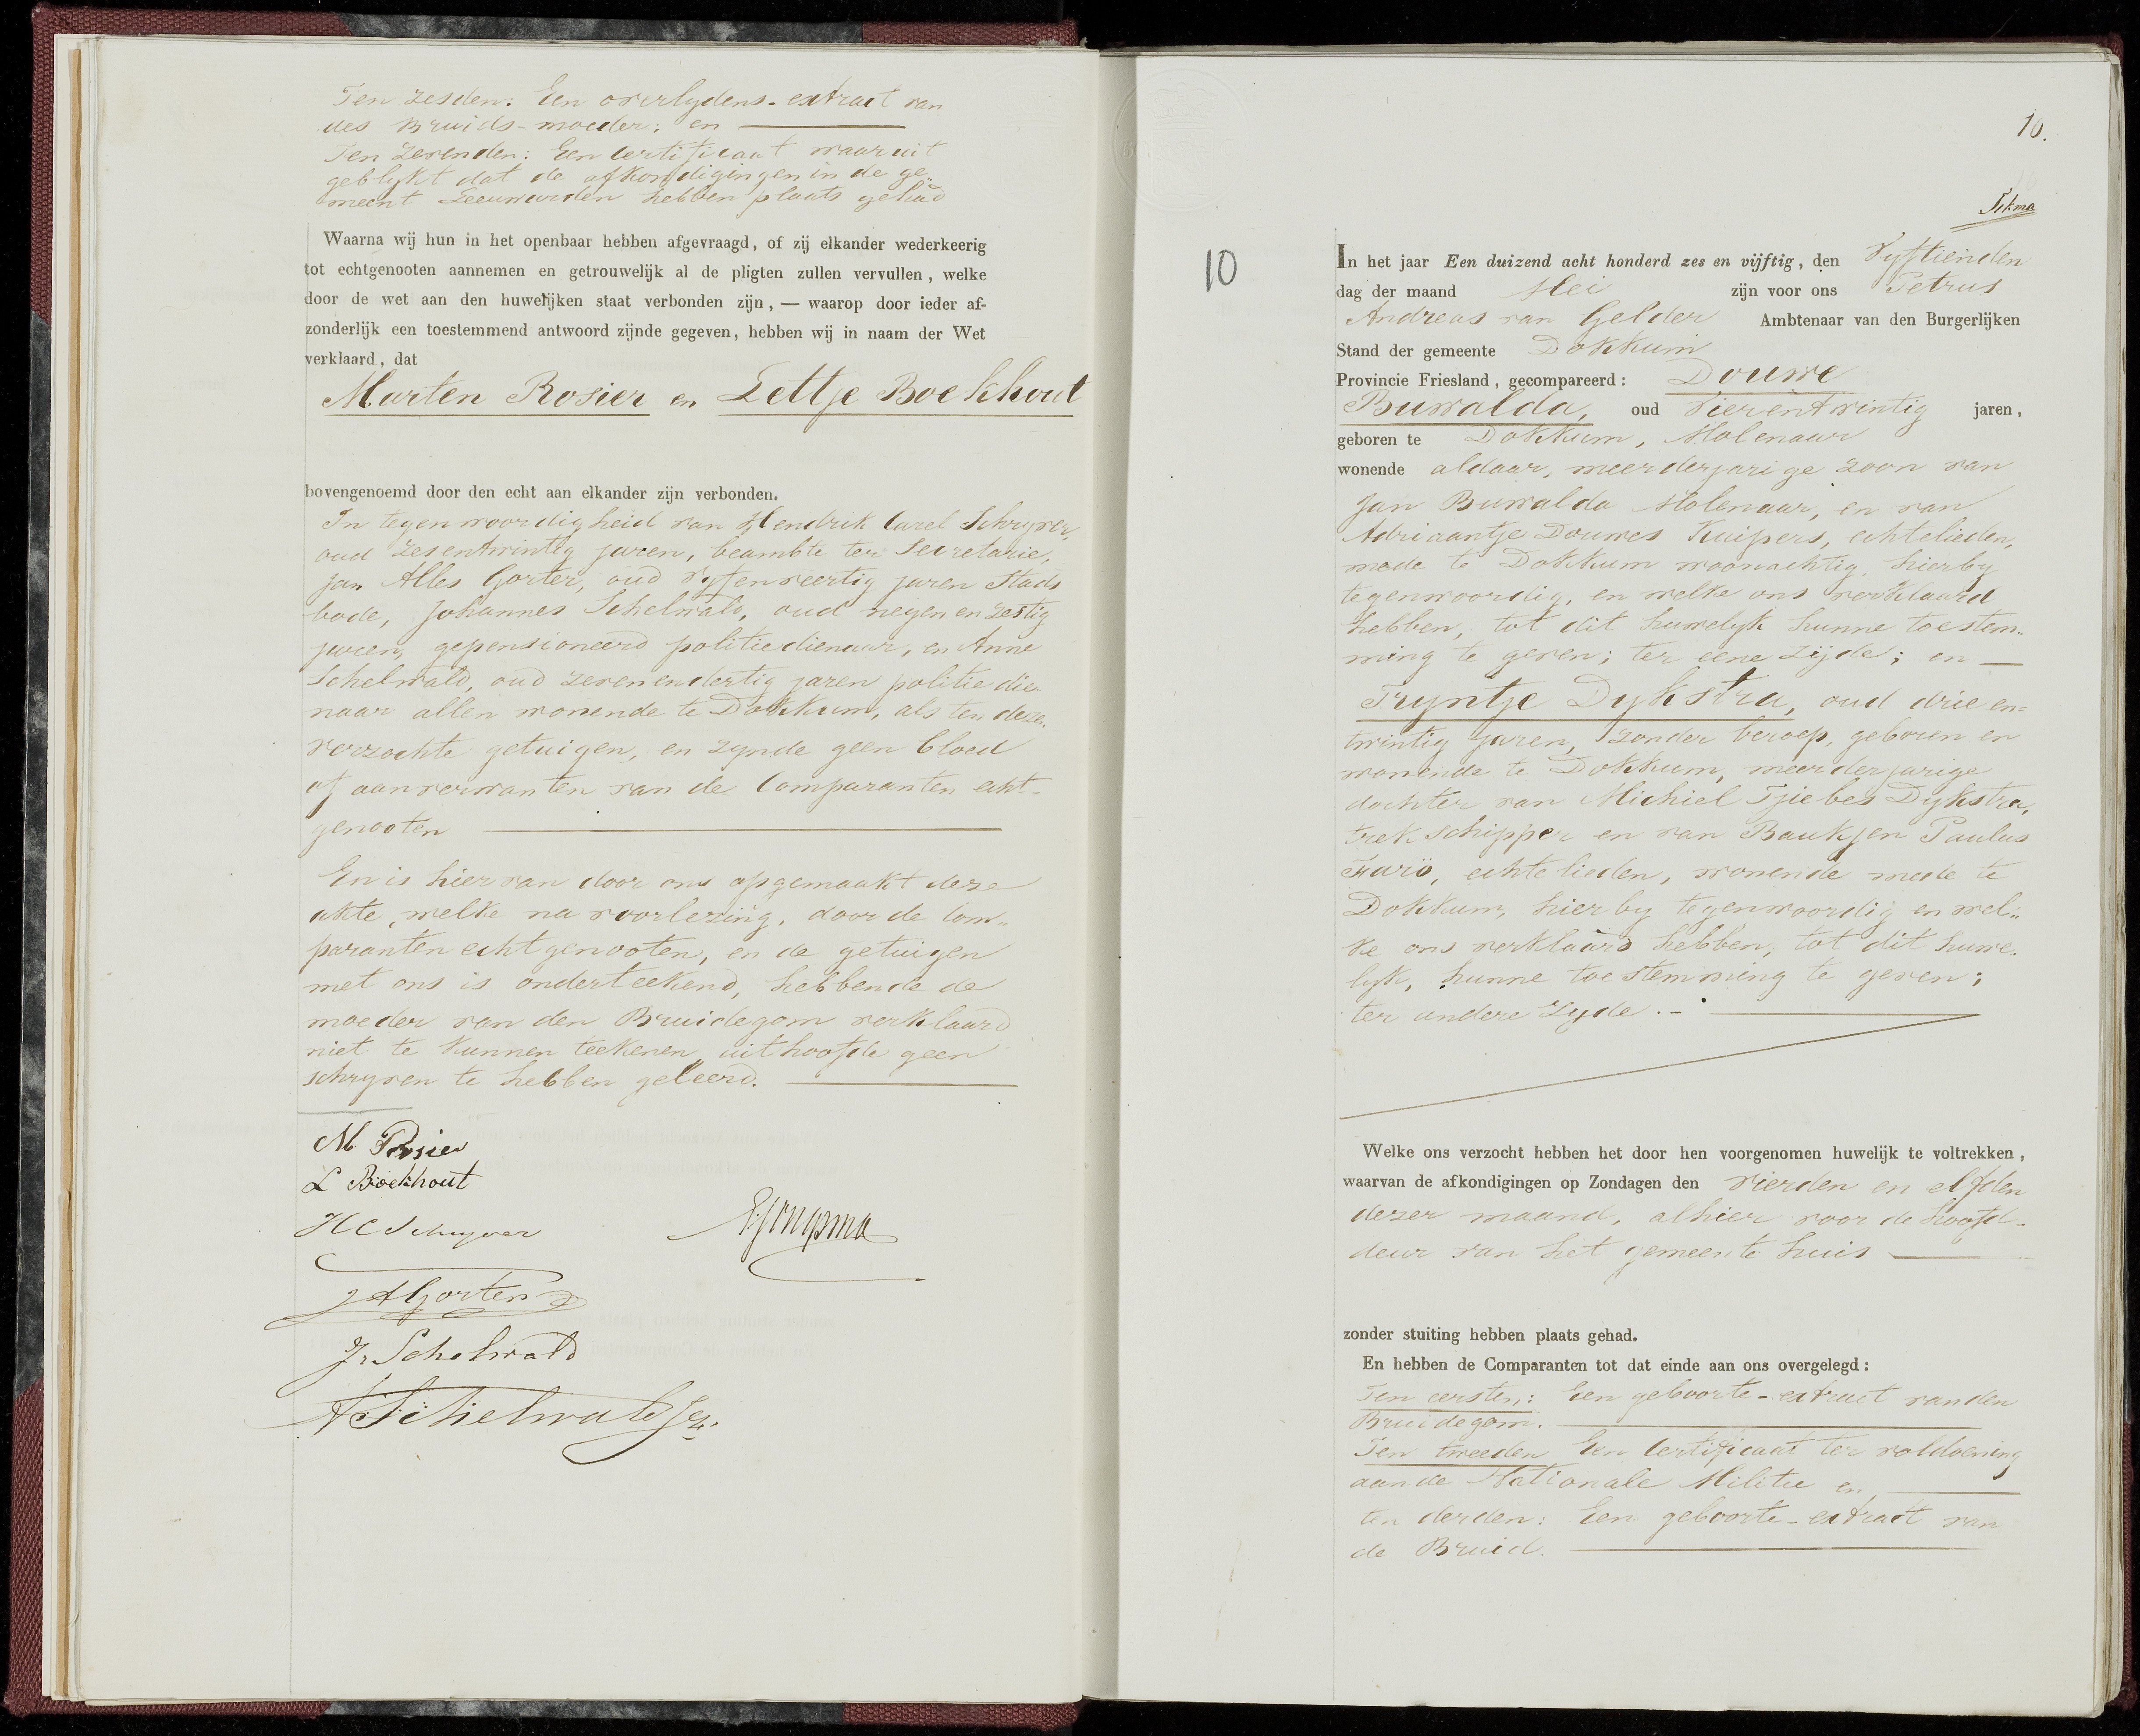 Ten zesden: Een overlydens-extract van
des Bruids-moeder; en
Ten zevenden: Een Certificaat waaruit
geblykt dat de afkondigingen in de ge„
meent Leeuwarden hebben plaats gehad
Waarna wij hun in het openbaar hebben afgevraagd, of zij elkander wederkeerig
tot echtgenooten aannemen en getrouwelijk al de pligten zullen vervullen, welke
door de wet aan den huwelijken staat verbonden zijn, — waarop door ieder af-
zonderlijk een toestemmend antwoord zijnde gegeven, hebben wij in naam der Wet
verklaard, dat
Marten Rosier en Lettje Boekhout
bovengenoemd door den echt aan elkander zijn verbonden.
In tegenwoordigheid van Hendrik Carel Schryver,
oud zesentwintig jaren, beambte ter Secretarie,
Jan Alles Gorter, oud vyfenveertig jaren Stads
bode, Johannes Schelwald, oud negen en zestig
jaren, gepensioneerd politiedienaar, en Anne
Schelwald, oud zevenendertig jaren politie die„
naar allen wonende te Dokkum, als ten deze„
verzochte getuigen, en zynde geen bloed
of aanverwanten van de Comparanten echt-
genooten
En is hiervan door ons opgemaakt deze
akte, welke na voorlezing, door de Com„
paranten echtgenooten, en de getuigen
met ons is onderteekend, hebbende de
moeder van den Bruidegom verklaard
niet te kunnen teekenen, uit hoofde geen
schryven te hebben geleerd.
M. Rosier
L Boekhout
H C Schryver
J A Gorter
J. Schelwald
A Schelwald Jzn.
10.
10
In het jaar Een duizend acht honderd zes en vijftig, den Vyftienden
dag der maand Mei zijn voor ons Petrus
Andreas van Gelder Ambtenaar van den Burgerlijken
Stand der gemeente Dokkum
Provincie Friesland, gecompareerd: Douwe
Buwalda, oud vierentwintig jaren,
geboren te Dokkum, Molenaar
wonende aldaar, meerderjarige zoon van
Jan Buwalda Molenaar, en van
Adriaantje Douwes Kuipers, echtelieden,
mede te Dokkum woonachtig, hierby
tegenwoordig, en welke ons verklaard
hebben, tot dit huwelyk hunne toestem„
ming te geven; ter eene zijde; en
Tryntje Dykstra, oud drie en=
twintig jaren, zonder beroep, geboren en
wonende te Dokkum, meerderjarige
dochter van Michiel Tjiebes Dykstra,
trekschipper en van Baukjen Paulus
echtelieden, wonende mede te
Dokkum, hierby tegenwoordig en wel„
ke ons verklaard hebben, tot dit huwe„
lyk, hunne toestemming te geven;
ter andere zyde.
Welke ons verzocht hebben het door hen voorgenomen huwelijk te voltrekken,
waarvan de afkondigingen op Zondagen den vierden en elfden
dezer maand, alhier voor de hoofd-
deur van het gemeente huis
zonder stuiting hebben plaats gehad.
En hebben de Comparanten tot dat einde aan ons overgelegd:
Ten eersten: Een geboorte-extract van den
Bruidegom.
Ten tweeden Een Certificaat ter voldoening
aan de Nationale Militie en
ten derden: Een geboorte-extract van
de Bruid.